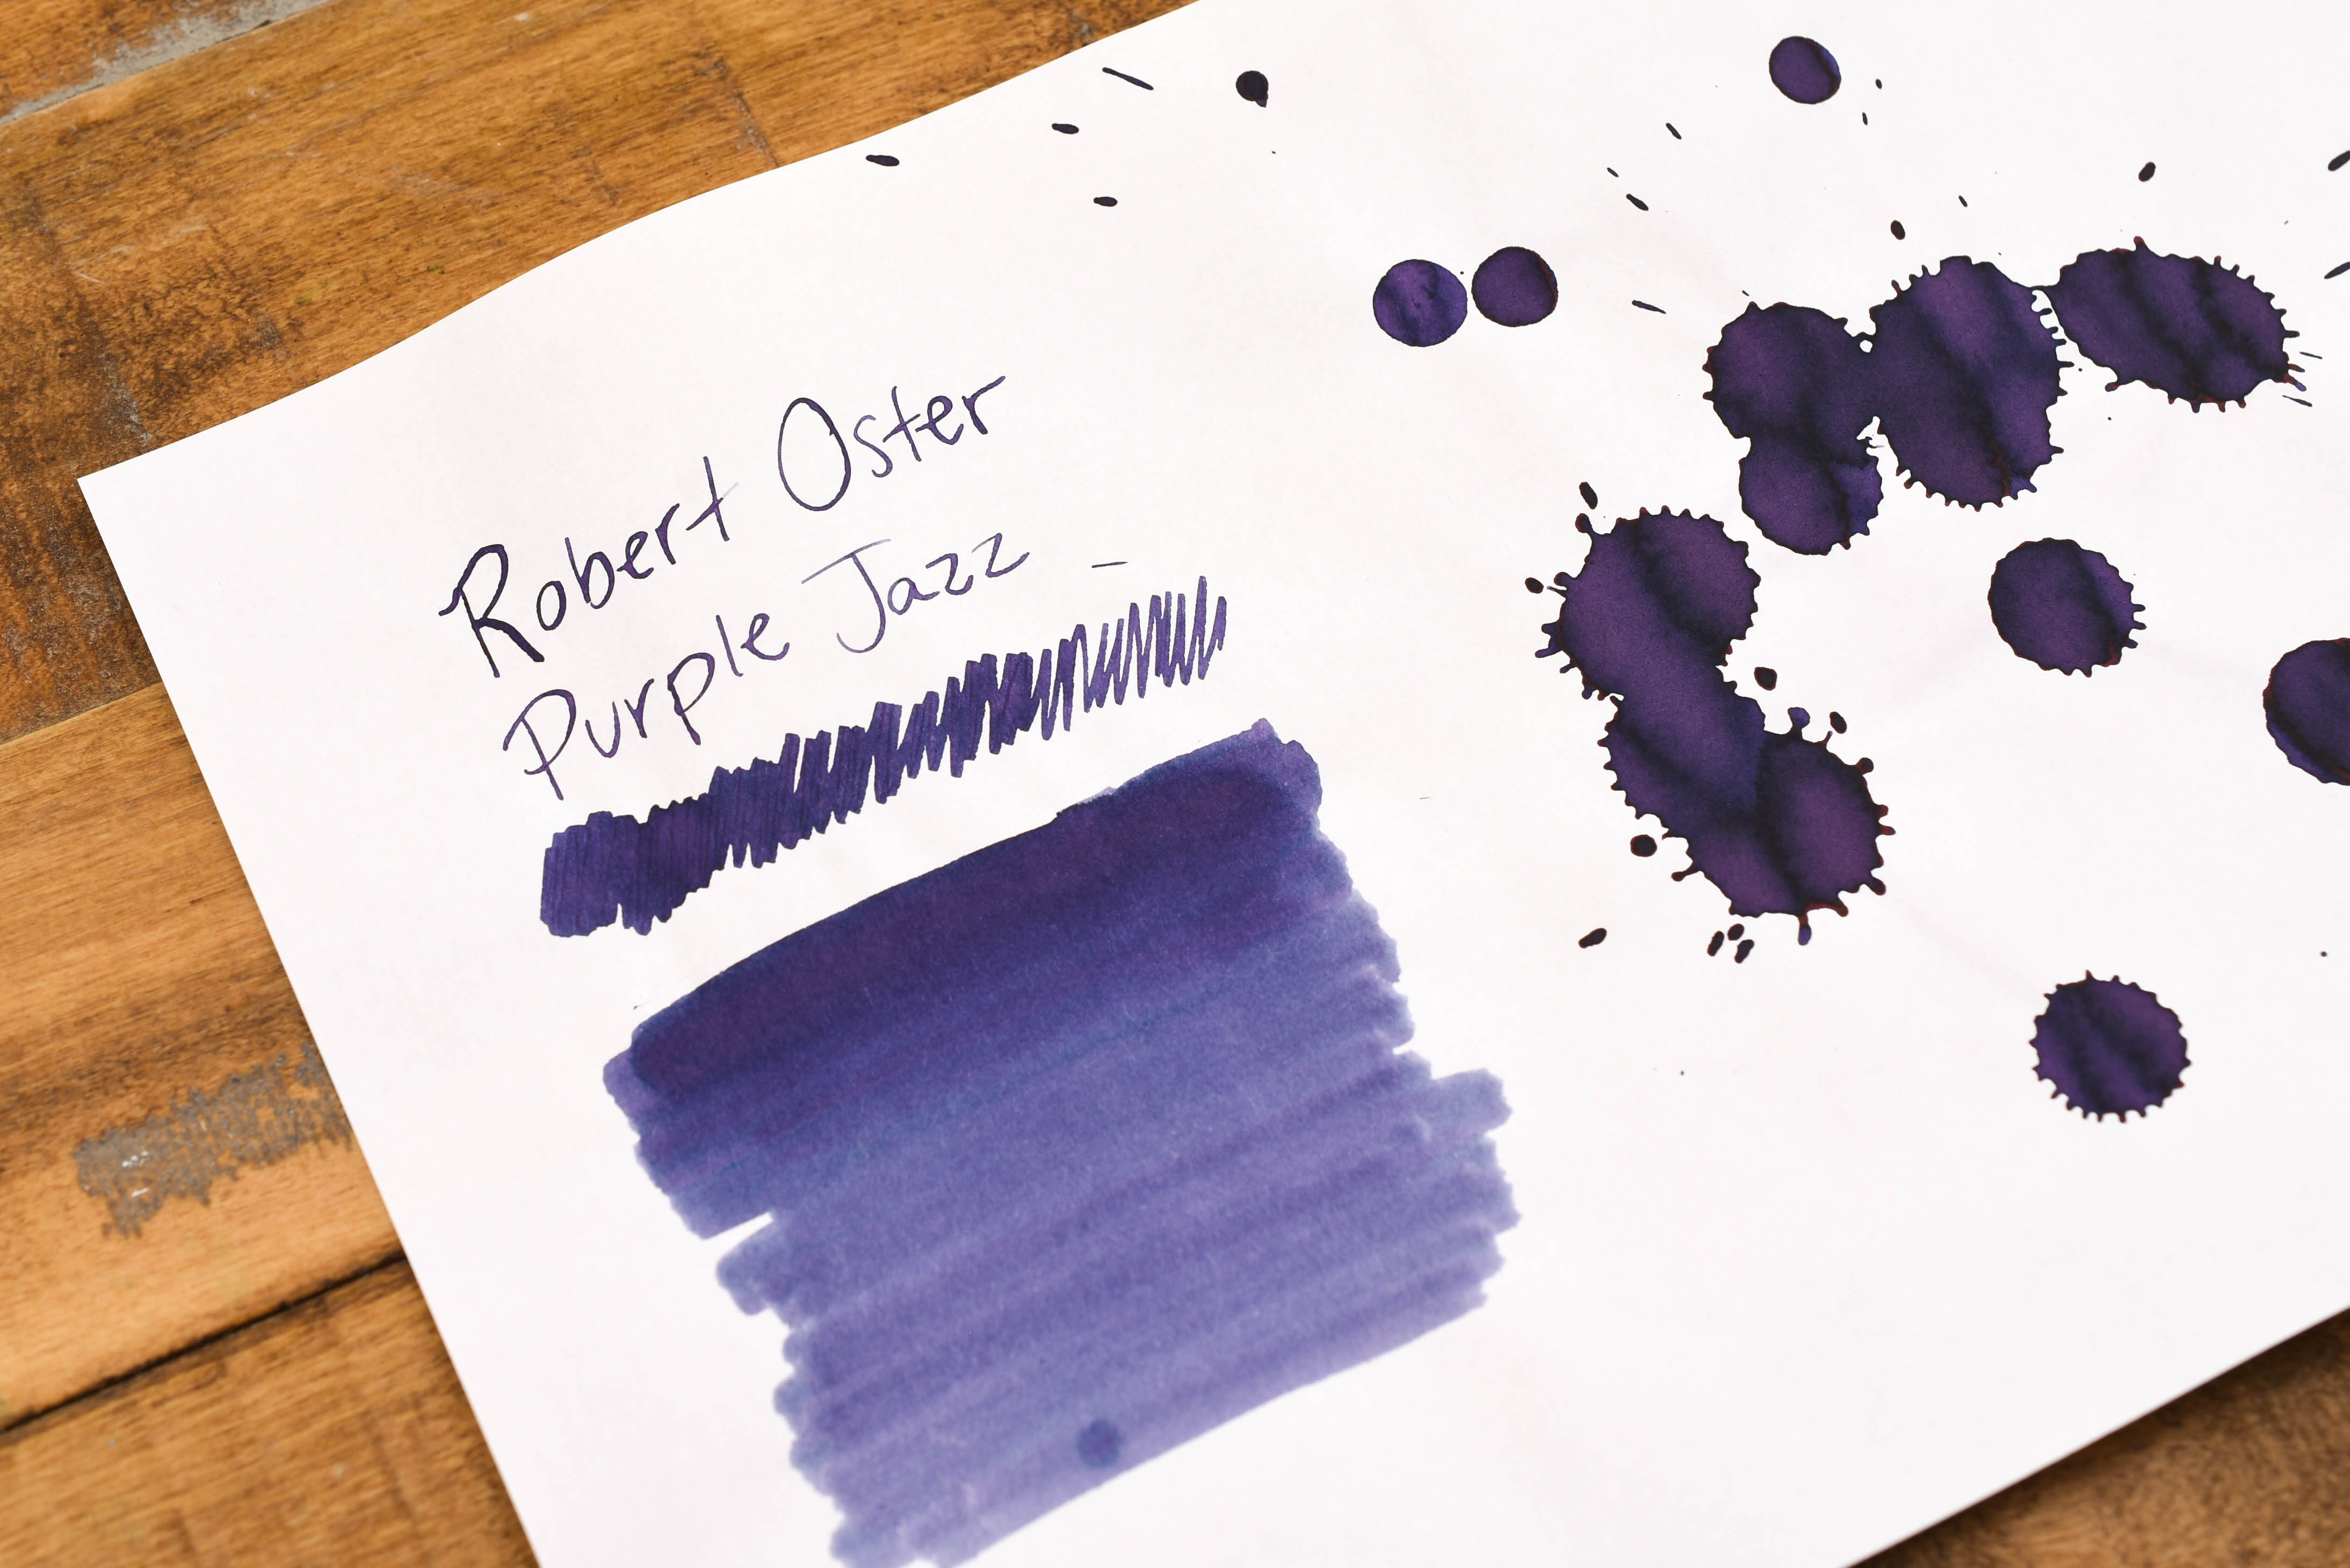 Robert Oster
Purple Jazz